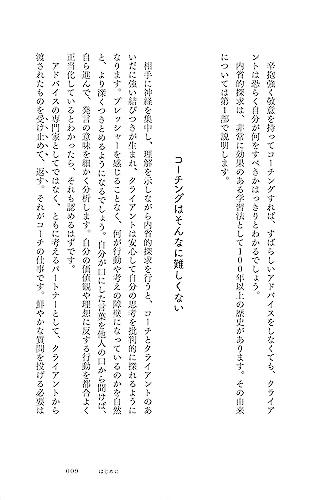 辛抱強く敬意を持ってコーチングすれば、すばらしいアドバイスをしなくても、クライア
ントは恐らく自分が何をすべきかはっきりとわかるでしょう。
内省的探求は、非常に効果のある学習法として100年以上の歴史があります。その由来
については第1部で説明します。
コーチングはそんなに難しくない
相手に神経を集中し、理解を示しながら内省的探求を行うと、コーチとクライアントのあ
いだに強い結びつきが生まれ、クライアントは安心して自分の思考を批判的に探れるように
なります。プレッシャーを感じることなく、何が行動や考えの障壁になっているのかを自然
と、より深くつきとめるようになるでしょう。自分が口にした言葉を他人の口から聞けば、
自ら進んで、発言の意味を細かく分析します。自分の価値観や理想に反する行動を都合よく
正当化しているとわかったら、それも認めるはずです。
アドバイスの専門家としてではなく、ともに考えるパートナーとして、クライアントから
渡されたものを受け止めて、返す。それがコーチの仕事です。鮮やかな質問を投げる必要は
009 はじめに